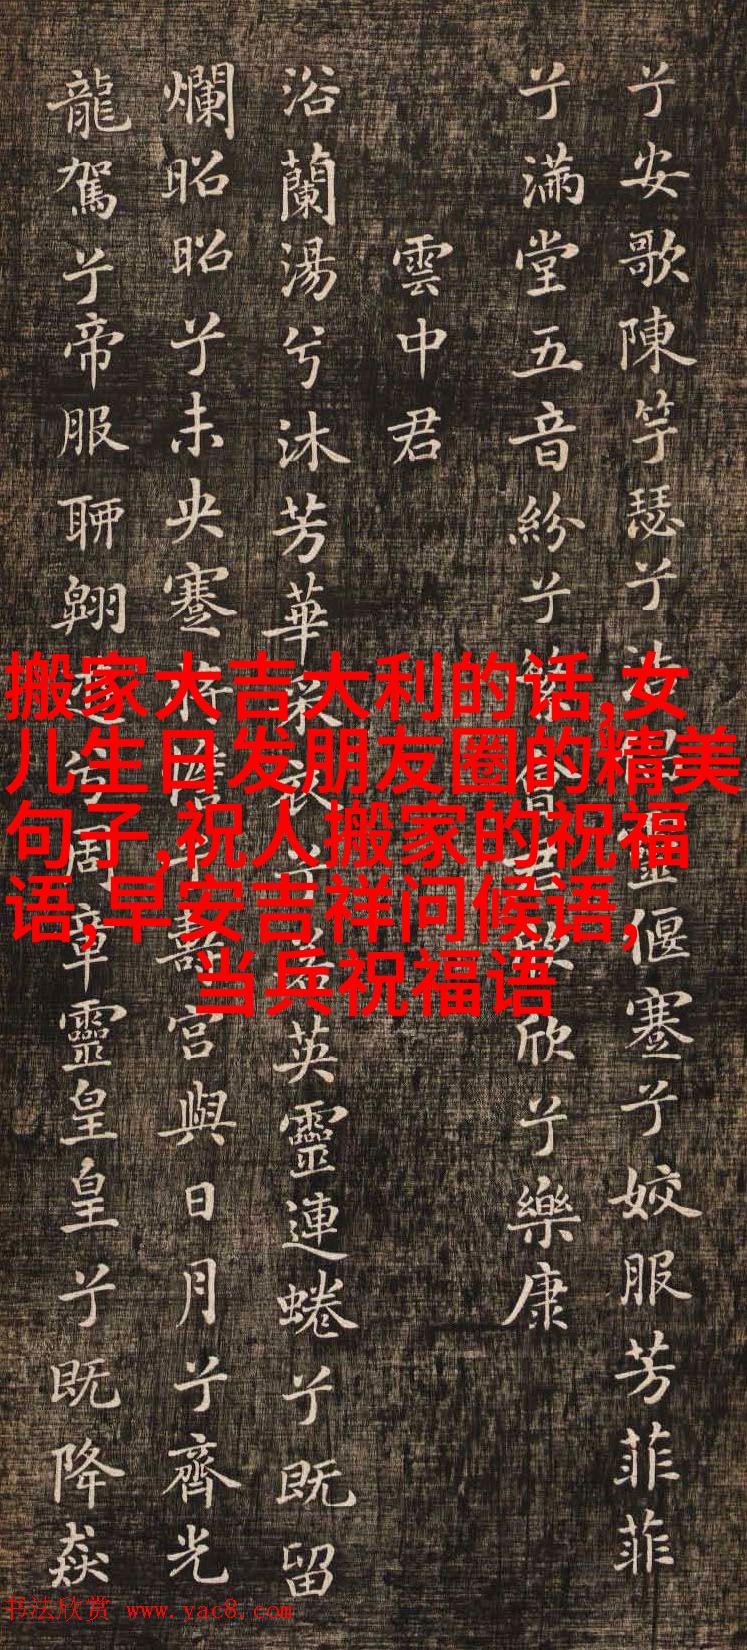 兮安歌陳竽瑟兮浩倡靈偃蹇兮姣服芳菲菲
兮滿堂五音紛兮繁會君欣欣兮樂康
雲中君
浴蘭湯兮沐芳華采衣兮若英靈連蜷兮既留
爛昭昭兮未央蹇將憺兮壽宮與日月兮齊光
龍駕兮帝服聊翱遊兮周章靈皇皇兮既降猋
搬家大吉大利的话,女
儿生日发朋友圈的精美
句子,祝人搬家的祝福
语,早安吉祥问候语,
当兵祝福语
书法欣赏 www.yac8.com